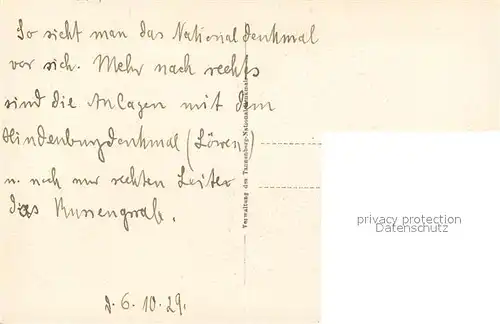 So sieht man das Nationaldenkmal
vor sich. Mehr nach rechts
sind die Anlagen mit dem
Hindenburgdenkmal (Löwen)
u. noch nur rechten Seite
das Russengrab.
d. 6. 10. 29.
Verwaltung des Tannenberg-Nationaldenkmals
privacy protection
Datenschutz